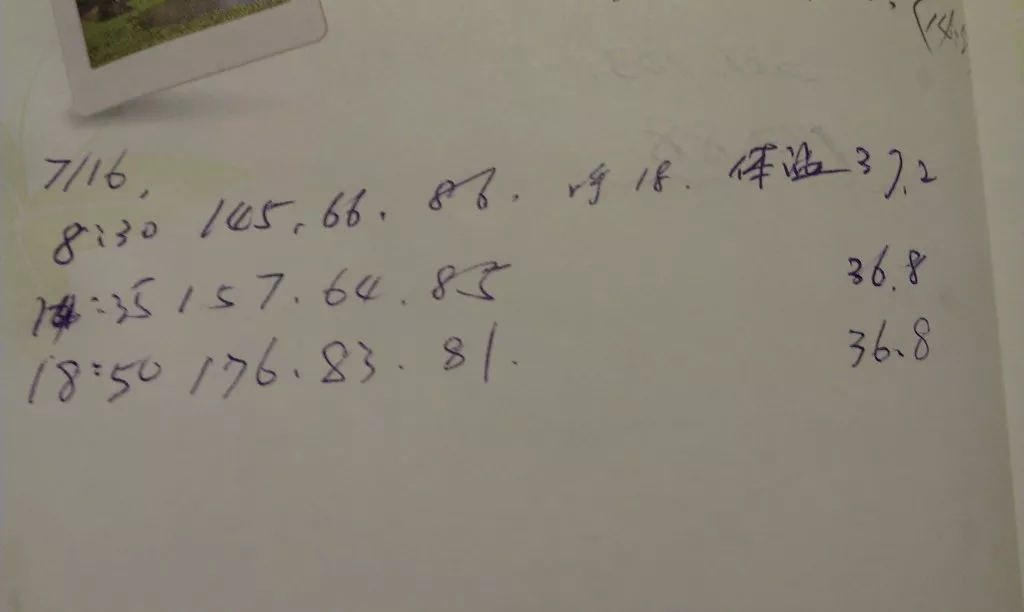 7/16.
8:30 145.66.86.呼18.体温37.2
:35 157.64.85 36.8
18:50 176.83.81. 36.8